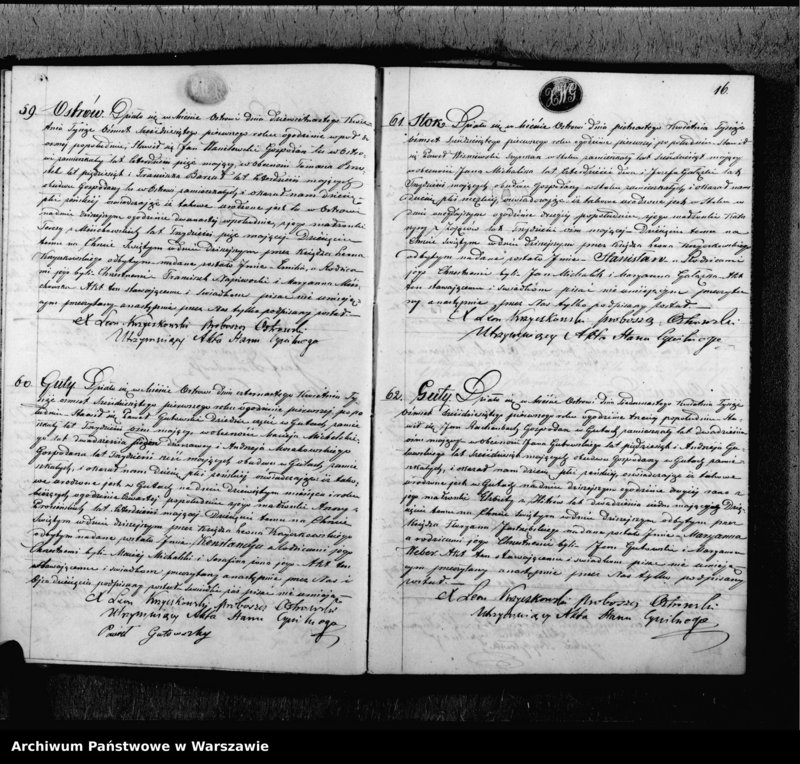 59 Ostrów. Działo się w Mieście Ostrowi dnia dziewiętnastego Kwie
tnia Tysiąc Ośmset Sześćdziesiątego pierwszego roku o godzinie
popołudniu, Stawił się Jan Gospodarz tu w Ostro
wi zamieszkały lat czterdzieści pięć mający, w obecności
lat pięćdziesiąt i Franciszka lat czterdzieści mających
obudwu Gospodarzy tu w Ostrowi zamieszkałych i okazał nam dziecię
płci żeńskiej oświadczając iż takowe urodzone jest tu w Ostrowi
na dniu dzisiejszym o godzinie dwunastej w południe, z jego małżonki
Teresy z lat trzydzieści pięć mającej Dziecięciu
temu na Chrzcie Świętym w dniu dzisiejszym przez Księdza Leona
Krzyżkowskiego odbytym nadane zostało Imie Emilia, a Rodzica
mi jej byli Chrzestnemi Franciszek i Maryanna
Akt ten stawającemu i świadkom pisać nie umieją
cym przeczytany a następnie przez Nas tylko podpisany został
X Leon Krzyżkowski Proboszcz Ostrowski
Utrzymujący Akta Stanu Cywilnego
60. Guty Działo się w Mieście Ostrowi dnia czternastego Kwietnia Ty
siąc ośmset Sześćdziesiątego pierwszego roku o godzinie pierwszej po po
łudniu Stawił się Paweł Gutowski Dziedzic części w Gutach zamie
szkały lat Trzydzieści ośm mający w obecności Macieja Michalski
go lat dwadzieścia i Andrzeja
Gospodarza lat Trzydzieści sześć mających obudwu w Gutach zamie
szkałych, i okazał nam dziecię płci męskiej oświadczając iż tako
we urodzone jest w Gutach na dniu dziewiątym miesiąca i roku
bieżących o godzinie czwartej popołudniu z jego małżonki Anny z
lat czterdzieści mającej Dziecięciu temu na Chrzcie
Świętym w dniu dzisiejszym przez Księdza Leona Krzyżkowskiego
odbytym nadane zostało Imie Konstanty a Rodzicami jego
Chrzestnemi byli Maciej Michalski i Serafina żona jego Akt ten
stawającemu i świadkom przeczytany a następnie przez Nas i
Ojca dziecięcia podpisany został świadkowie zaś pisać nie umieją
X Leon Krzyżkowski Proboszcz Ostrowski
Utrzymujący Akta Stanu Cywilnego
Paweł Gutowski
16
61. Stok Działo się w Mieście Ostrowi dnia piętnastego Kwietnia Tysiąc
ośmset Sześćdziesiątego pierwszego roku o godzinie pierwszej po południu Stawił
się Paweł Wiśniewski w Stoku zamieszkały lat mający
w obecności Jana Michalaka lat czterdzieści i Józefa Gałązki lat
Trzydzieści mających obudwu Gospodarzy w Stoku zamieszkałych i okazał nam
dziecię płci męzkiej, oświadczając iż takowe urodzone jest w Stoku w
dniu o godzinie drugiej popołudniu z jego małżonki Kata
rzyny z lat Trzydzieści ośm mającej Dziecięciu temu na
Chrzcie świętym w dniu dzisiejszym przez Księdza Leona Krzyżkowskiego
odbytym nadane zostało Imie Stanisław a Rodzicami
jego Chrzestnemi byli Jan Michalak i Maryanna Gałązka Akt
ten stawającemu i świadkom pisać nie umiejącym przeczyta
ny a następnie przez Nas tylko podpisany został
X Leon Krzyżkowski Proboszcz Ostrowski
Utrzymujący Akta Stanu Cywilnego
62. Guty Działo się w Mieście Ostrowi dnia siedmnastego Kwietnia Tysiąc
ośmset Sześćdziesiątego pierwszego roku o godzinie trzeciej popołudniu Sta
wił się Jan Gospodarz w Gutach zamieszkały lat dwadzieścia
ośm mający w obecności Jana Gutowskiego lat pięćdziesiąt i Andrzeja Gu
towskiego lat sześćdziesiąt mających obudwu Gospodarzy w Gutach zamie
szkałych, i okazał nam dziecię płci żeńskiej, oświadczając iż takowe
urodzone jest w Gutach na dniu dzisiejszym o godzinie drugiej rano z
jego małżonki Elżbiety z lat dwadzieścia siedm mającej Dzie
cięciu temu na Chrzcie świętym w dniu dzisiejszym odbytym przez
Księdza nadane zostało Imie Maryanna
a rodzicami jego Chrzestnemi byli Jan Gutowski i Maryanna
Weber Akt ten stawającemu i świadkom pisać nie umieją
cym przeczytany a następnie przez Nas tylko podpisany
został
X Leon Krzyżkowski Proboszcz Ostrowski
Utrzymujący Akta Stanu Cywilnego
Archiwum Państwowe w Warszawie